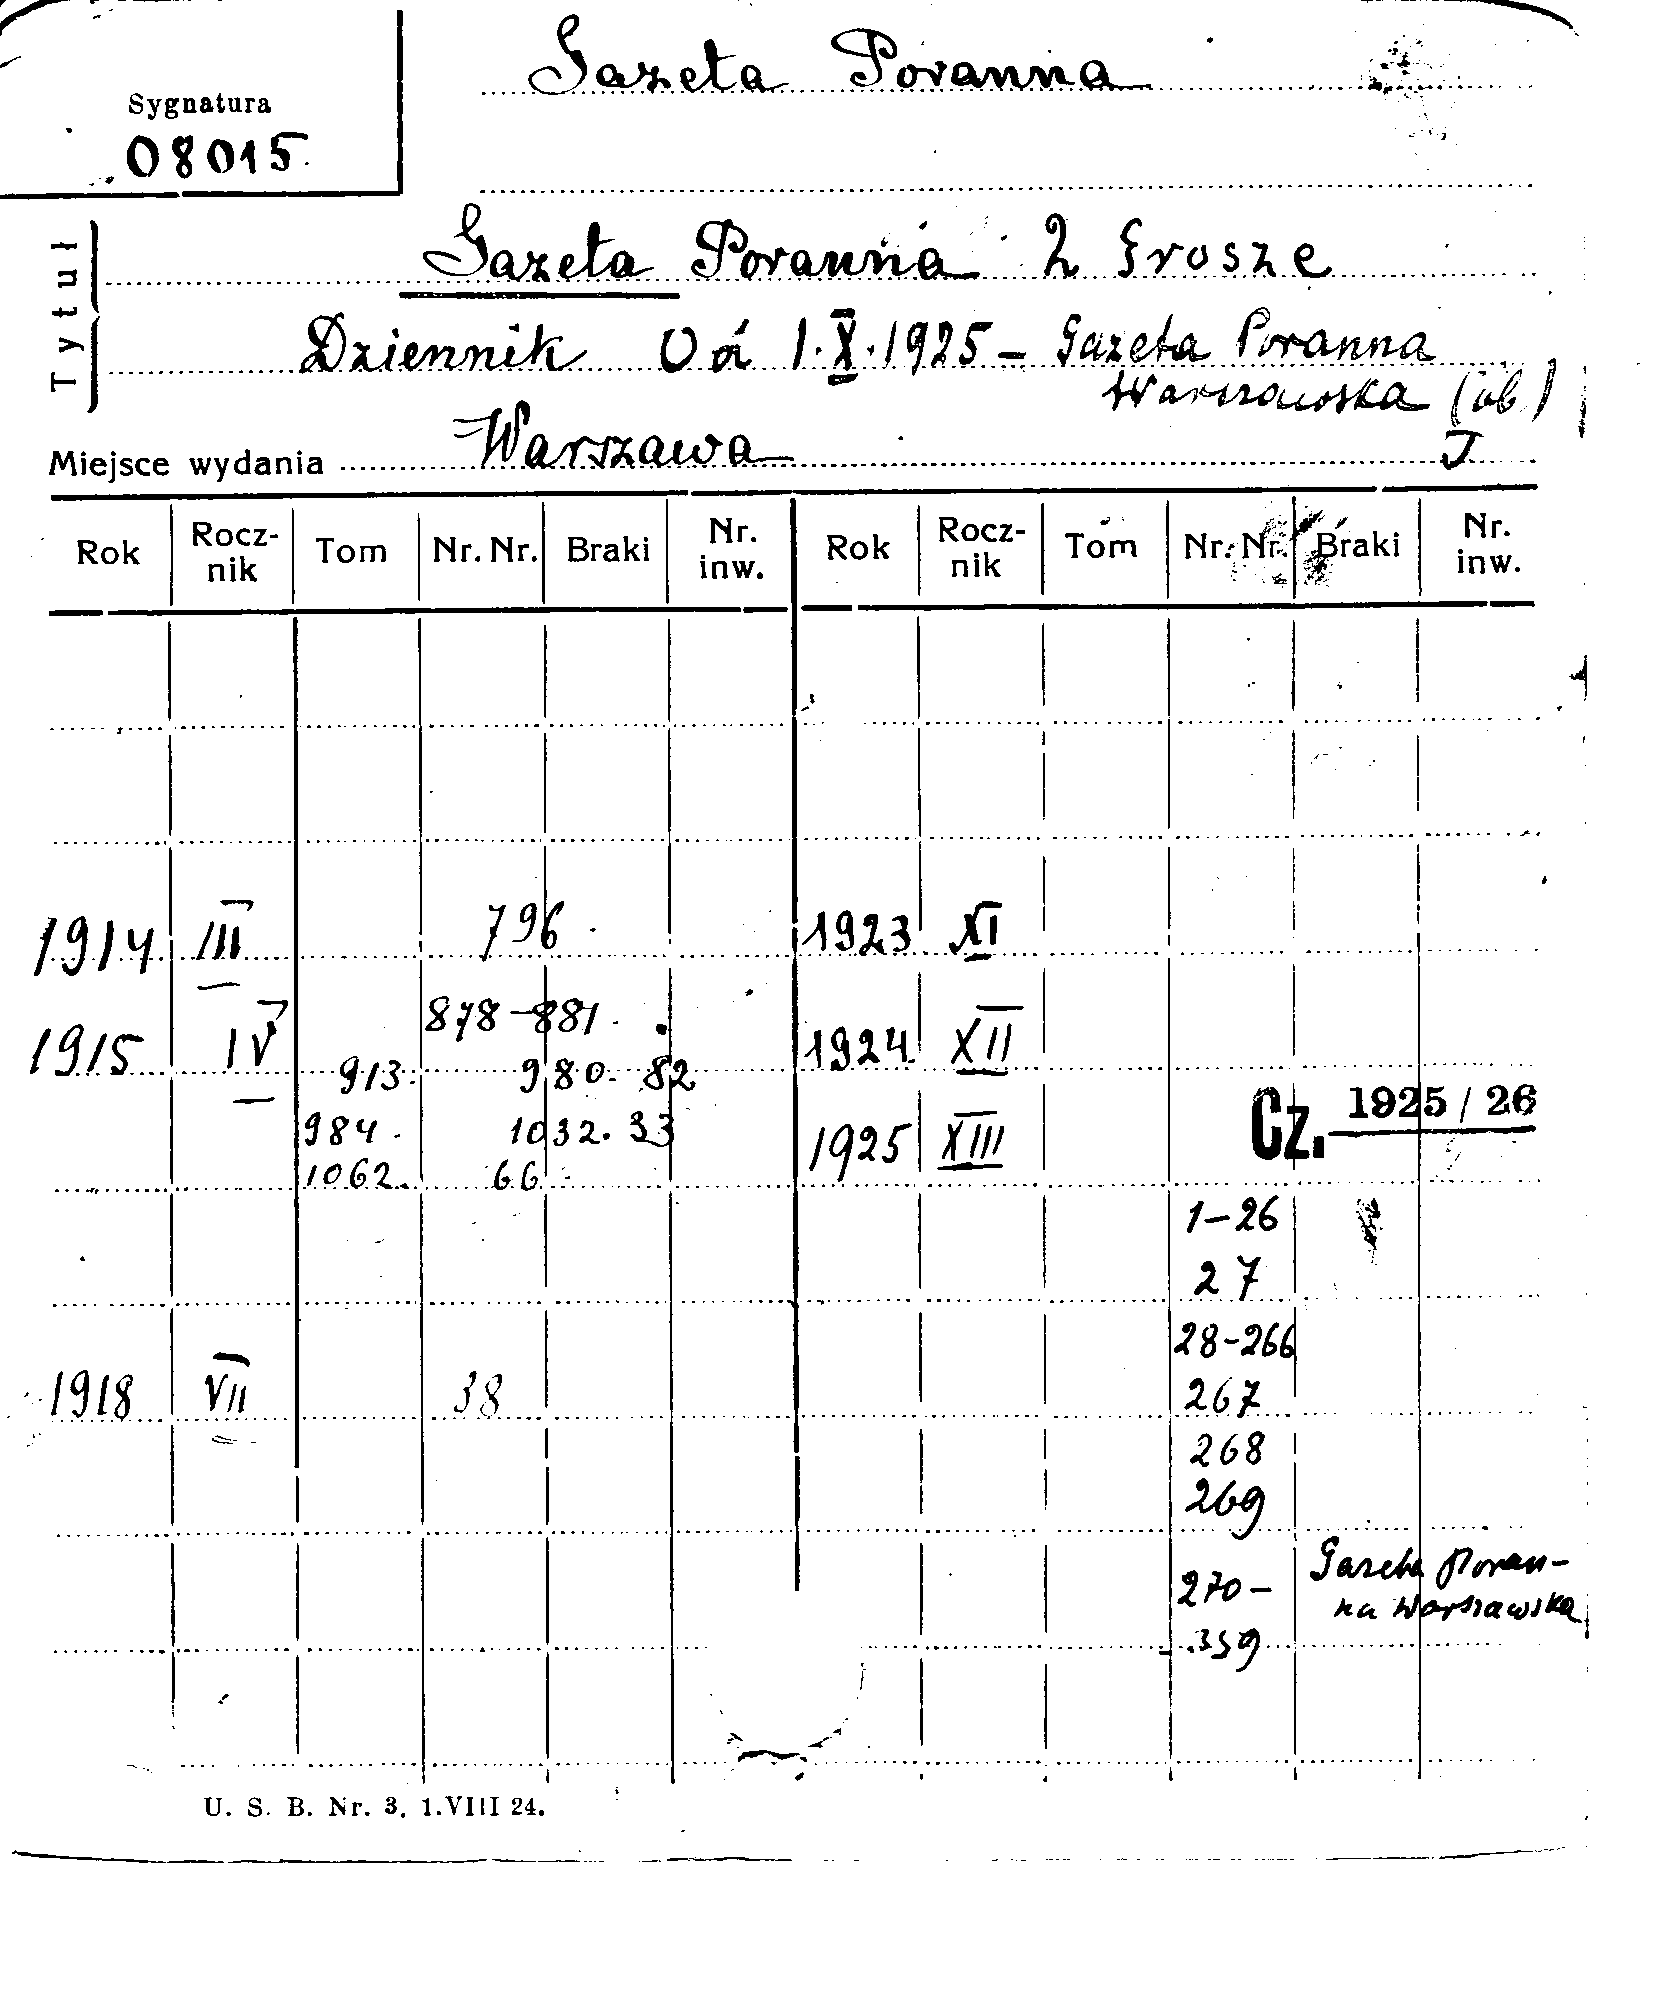 Gazeta Poranna
Sygnatura
08015
Tytuł
Gazeta Poranna 2 Grosze
Dziennik Od 1.X.1925 – Gazeta Poranna
Warszawska (ob.)
Miejsce wydania Warszawa J
Rok Rocz-nik Tom Nr. Nr. Braki Nr. inw. Rok Rocz-nik Tom Nr. Nr. Braki Nr. inw.
1914 III 796. 1923 XI
878-881.
1915 IV 1924 XII
913. 980. 82
984. 1032. 33
1062. 66
1925 XIII Cz. 1925/26
1-26
27
28-266
1918 VII 38 267
268
269
270-
-359
Gazeta Poran-
na Warszawska
U. S. B. Nr. 3. 1.VIII 24.